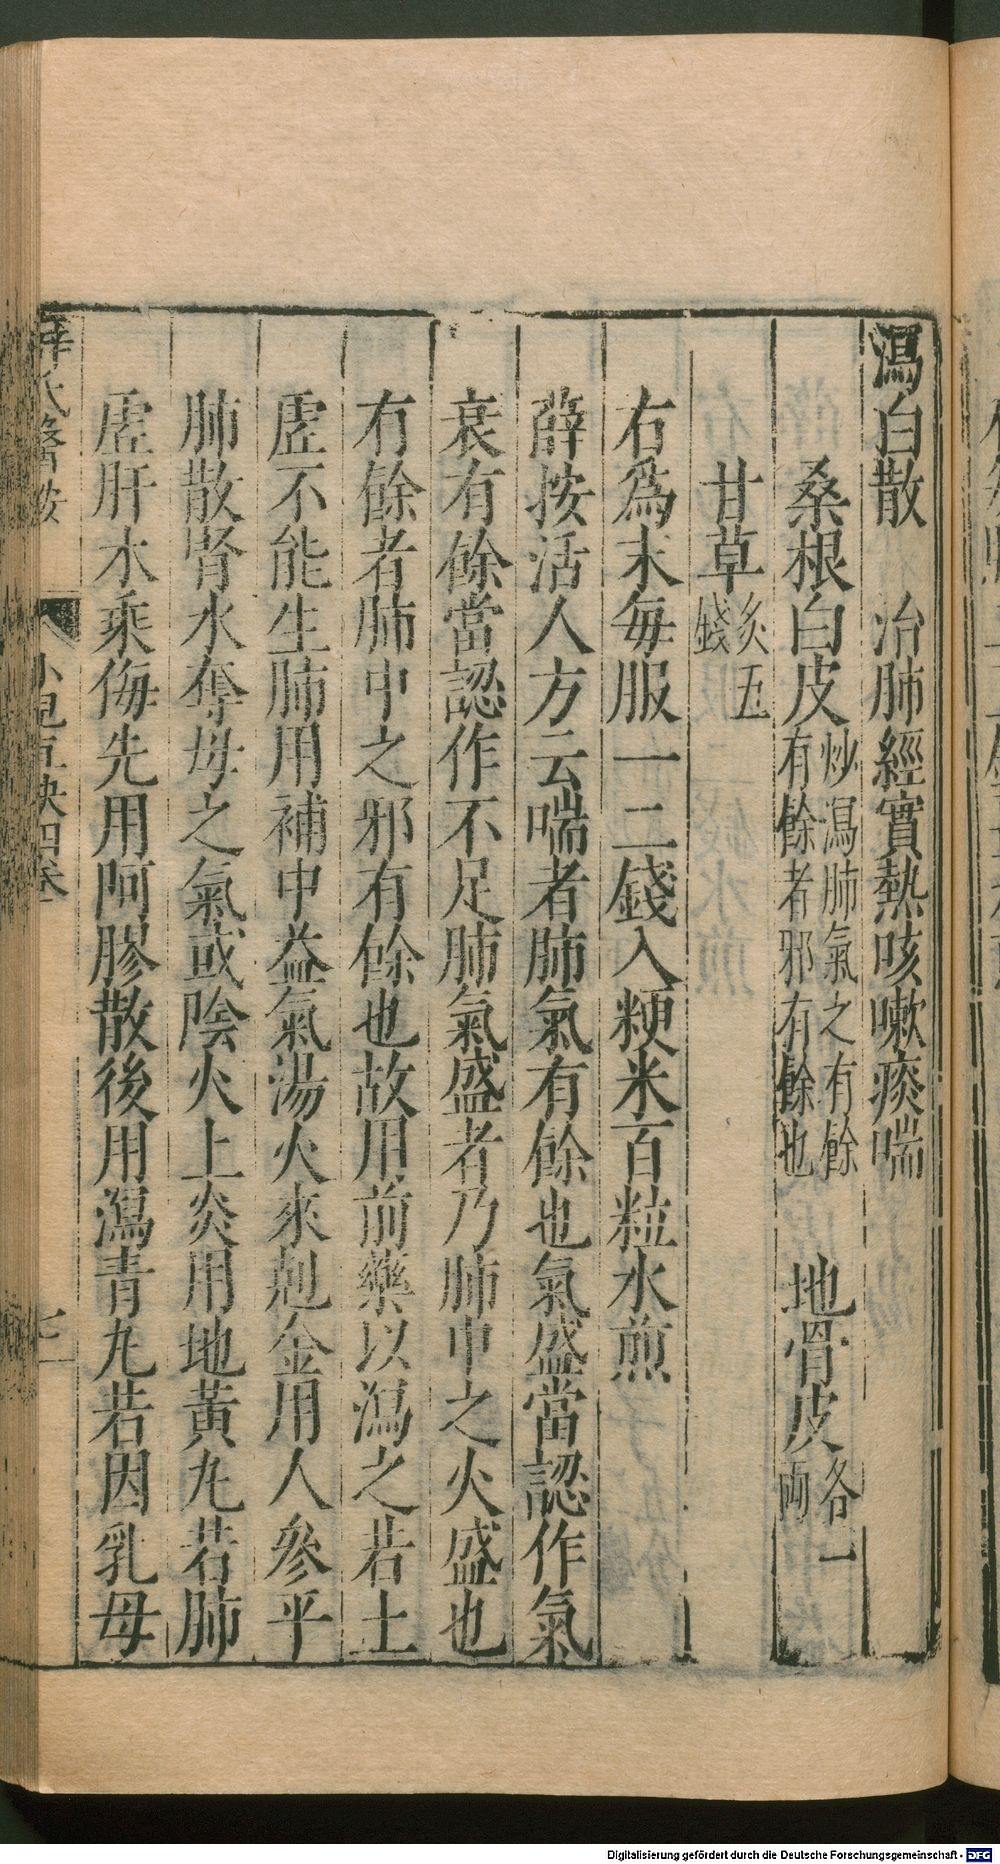 瀉白散　治肺經實熱咳嗽痰喘
桑根白皮炒瀉肺氣之有餘有餘者邪有餘也　地骨皮各一兩
甘草炙五錢
右為末每服一二錢入粳米百粒水煎
薛按活人方云喘者肺氣有餘也氣盛當認作氣
衰有餘當認作不足肺氣盛者乃肺中之火盛也
有餘者肺中之邪有餘也故用前藥以瀉之若土
虛不能生肺用補中益氣湯火來剋金用人參平
肺散腎水奪母之氣或陰火上炎用地黃丸若肺
虛肝木乘侮先用阿膠散後用瀉青丸若因乳母
薛氏醫按　小兒直訣四卷　七
Digitalisierung gefördert durch die Deutsche Forschungsgemeinschaft - DFG